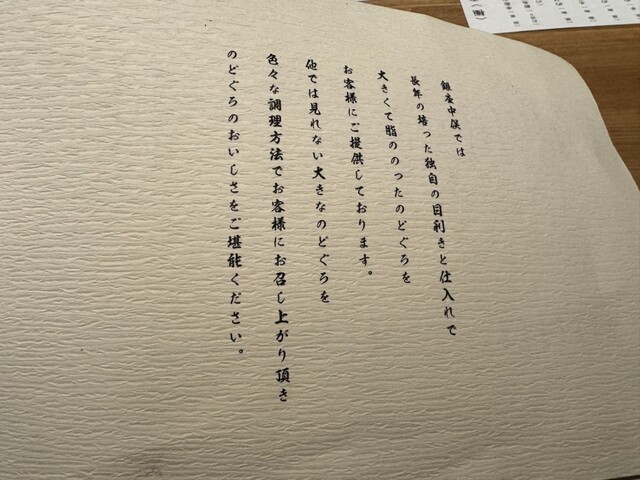 銀座中俣では
長年の培った独自の目利きと仕入れで
大きくて脂ののったのどぐろを
お客様にご提供しております。
他では見れない大きなのどぐろを
色々な調理方法でお客様にお召し上がり頂き
のどぐろのおいしさをご堪能ください。